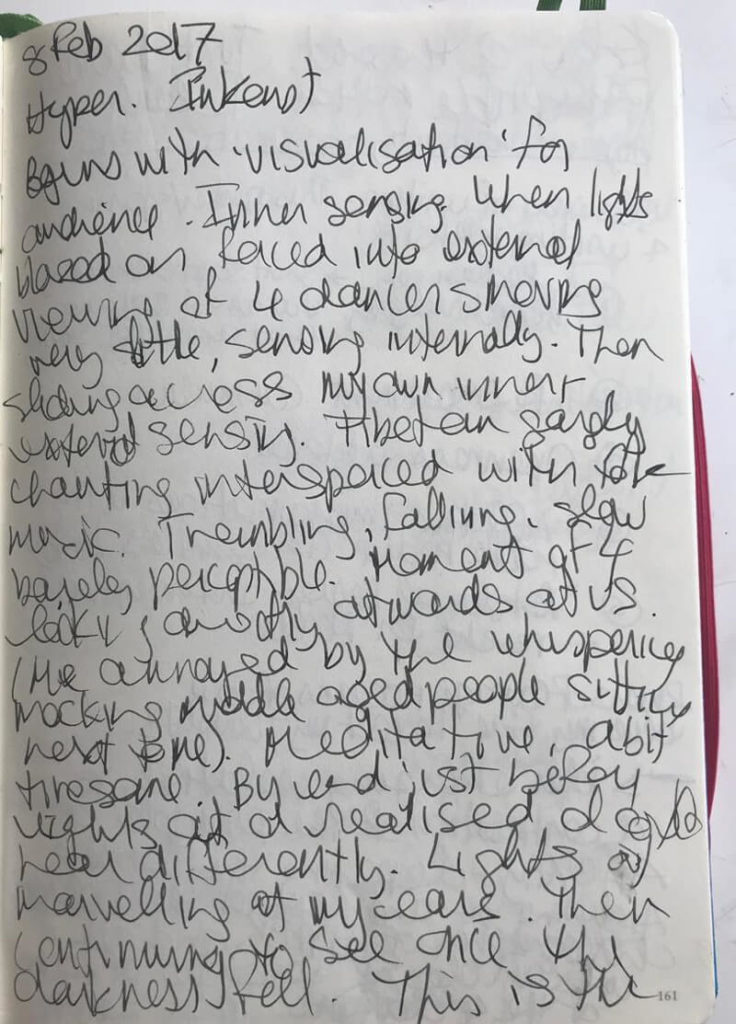 8 Feb 2017
Hyper. Inkonst
Begins with 'visualisation' for
audience. Inner sensing. When lights
blazed on faced into external
viewing of 4 dancers moving
very little, sensing internally. Then
sliding across my own inner
external sensing. Tibetan
chanting interspaced with folk
music. Trembling, falling, slow
barely perceptible. Moment of 4
looking directly outwards at us.
(Me annoyed by the whispering
mocking middle aged people sitting
next to me). Meditative, a bit
tiresome. By end just before
lights out I realised I could
hear differently. Lights on
marvelling at my ears. Then
continuing to see once the
darkness fell. This is the
161